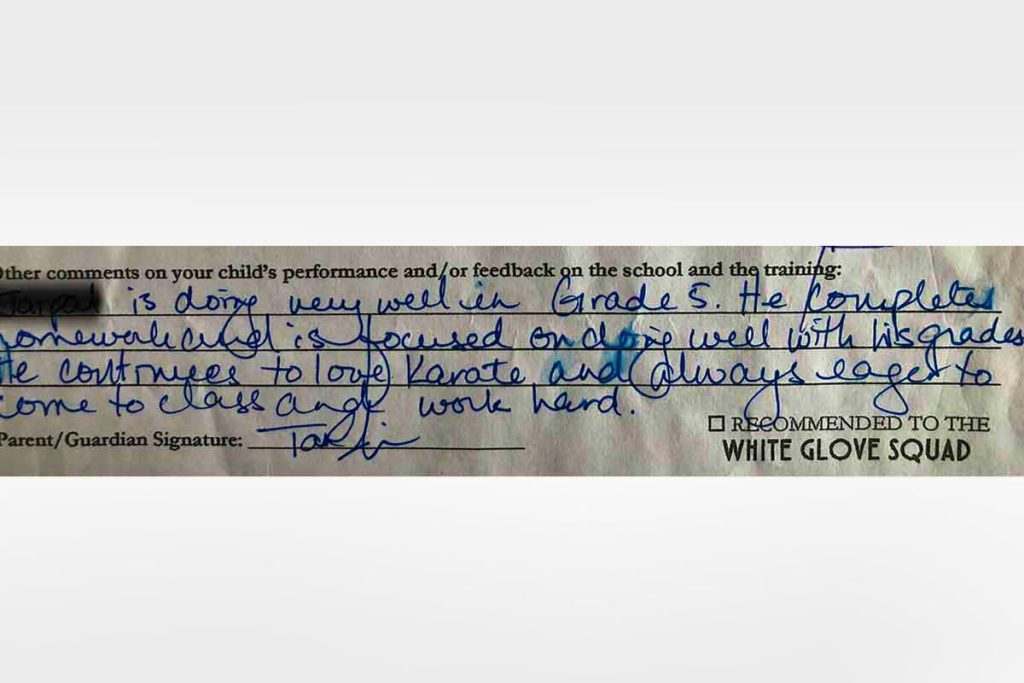 Other comments on your child's performance and/or feedback on the school and the training:
is doing very well in Grade 5. He completes
homework and is focused on doing well with his grades
He continues to love Karate and always eager to
come to class and work hard.
Parent/Guardian Signature:
☐ RECOMMENDED TO THE
WHITE GLOVE SQUAD